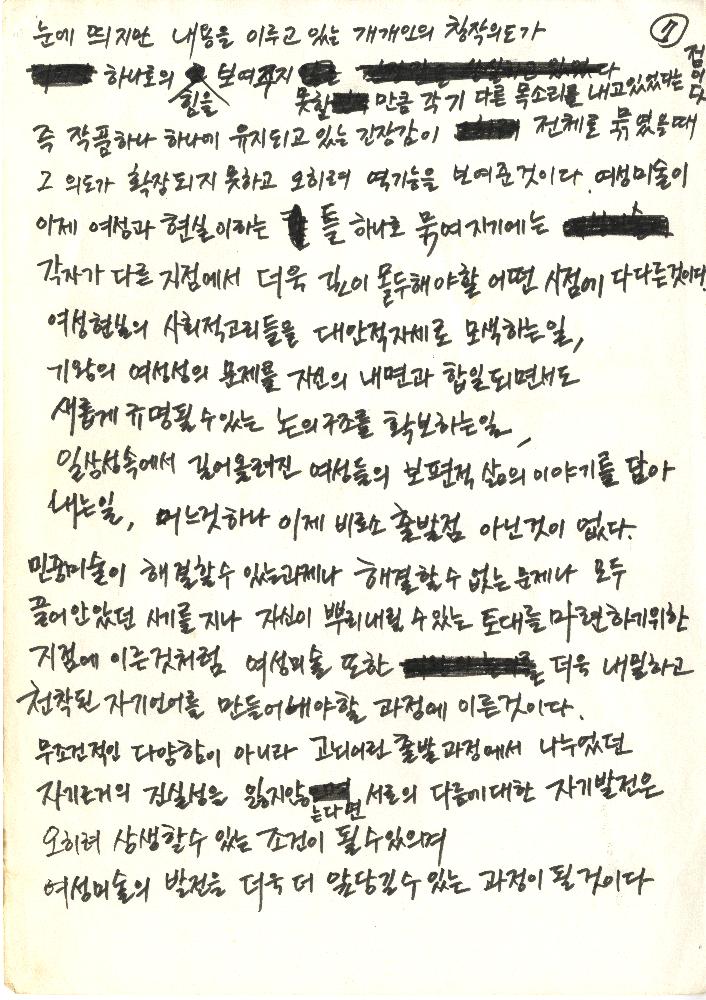 ⑦
눈에 띄지만 내용을 이루고 있는 개개인의 창작의도가
하나로의 힘을 보여주지
못할 만큼 각기 다른 목소리를 내고있었다는 점이다
즉 작품하나 하나에 유지되고 있는 긴장감이 전체로 묶였을때
그 의도가 확장되지 못하고 오히려 역기능을 보여준것이다. 여성미술이
이제 여성과 현실이라는 틀 하나로 묶여지기에는
각자가 다른 지점에서 더욱 깊이 몰두해야할 어떤 시점에 다다른것이다.
여성현실의 사회적고리들을 대안적자세로 모색하는일,
기왕의 여성성의 문제를 자신의 내면과 합일되면서도
새롭게 규명될 수 있는 논의구조를 확보하는일,
일상성속에서 길어올려진 여성들의 보편적 삶의 이야기를 담아
내는일, 어느것하나 이제 비로소 출발점 아닌것이 없다.
민중미술이 해결할수 있는과제나 해결할 수 없는 문제나 모두
끌어안았던 시기를 지나 자신이 뿌리내릴 수 있는 토대를 마련하기위한
지점에 이른것처럼 여성미술 또한 더욱 내밀하고
천착된 자기언어를 만들어 해야할 과정에 이른것이다.
무조건적인 다양함이 아니라 고뇌어린 출발과정에서 나누었던
자기근거의 진실성을 잃지않는다면 서로의 다름에대한 자기발전은
오히려 상생할수 있는 조건이 될 수 있으며
여성미술의 발전을 더욱 더 앞당길 수 있는 과정이 될 것이다